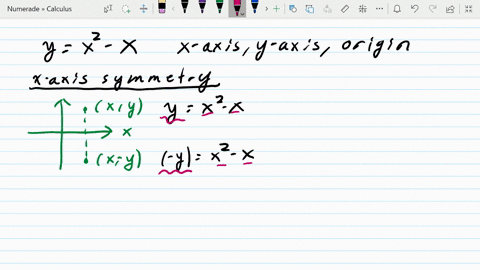 Numerade + Calculus
y = x² - x x-axis, y-axis, origin
x-axis symmetry
(x,y) y = x² - x
x
(x,-y) (-y) = x² - x